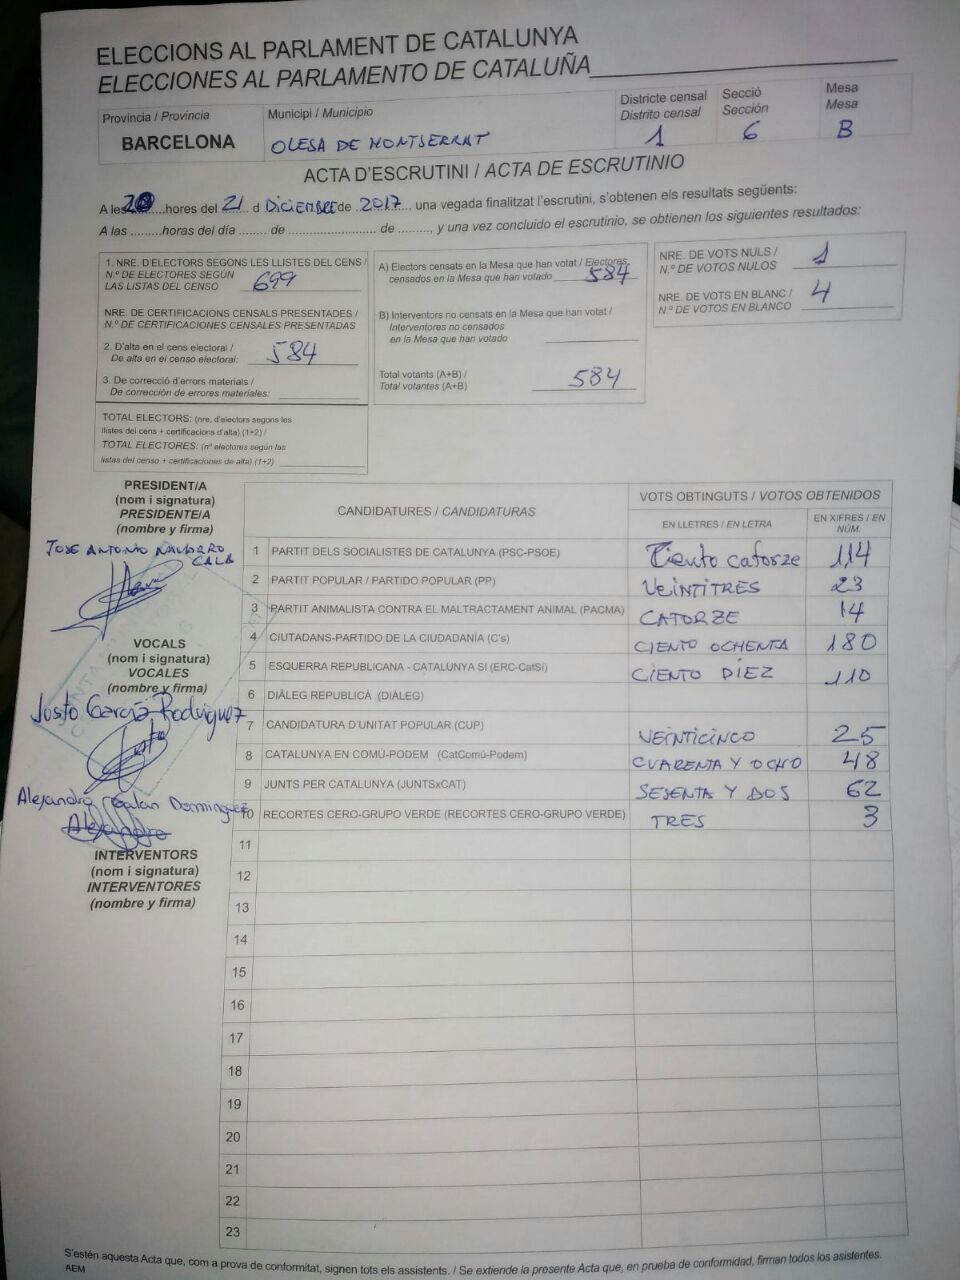 ELECCIONS AL PARLAMENT DE CATALUNYA
ELECCIONES AL PARLAMENTO DE CATALUÑA
Província / Provincia
BARCELONA
Municipi / Municipio
OLESA DE MONTSERRAT
Districte censal
Distrito censal
1
Secció
Sección
6
Mesa
Mesa
B
ACTA D'ESCRUTINI / ACTA DE ESCRUTINIO
A les 20 hores del 21 d DICIEMBRE de 2017, una vegada finalitzat l'escrutini, s'obtenen els resultats següents:
A las .........horas del día ........ de ......................... de ........., y una vez concluido el escrutinio, se obtienen los siguientes resultados:
1. NRE. D'ELECTORS SEGONS LES LLISTES DEL CENS /
N.º DE ELECTORES SEGÚN
LAS LISTAS DEL CENSO 699
NRE. DE CERTIFICACIONS CENSALS PRESENTADES /
N.º DE CERTIFICACIONES CENSALES PRESENTADAS
2. D'alta en el cens electoral /
De alta en el censo electoral: 584
3. De correcció d'errors materials /
De corrección de errores materiales:
TOTAL ELECTORS: (nre. d'electors segons les
llistes del cens + certificacions d'alta) (1+2) /
TOTAL ELECTORES: (nº electores según las
listas del censo + certificaciones de alta) (1+2)
A) Electors censats en la Mesa que han votat / Electores
censados en la Mesa que han votado 584
B) Interventors no censats en la Mesa que han votat /
Interventores no censados
en la Mesa que han votado
Total votants (A+B) /
Total votantes (A+B) 584
NRE. DE VOTS NULS /
N.º DE VOTOS NULOS 1
NRE. DE VOTS EN BLANC /
N.º DE VOTOS EN BLANCO 4
PRESIDENT/A
(nom i signatura)
PRESIDENTE/A
(nombre y firma)
JOSE ANTONIO NAVARRO
VOCALS
(nom i signatura)
VOCALES
(nombre y firma)
Justo García Rodríguez
Alejandro Galan Dominguez
INTERVENTORS
(nom i signatura)
INTERVENTORES
(nombre y firma)
CANDIDATURES / CANDIDATURAS
VOTS OBTINGUTS / VOTOS OBTENIDOS
EN LLETRES / EN LETRA
EN XIFRES / EN NÚM.
1 PARTIT DELS SOCIALISTES DE CATALUNYA (PSC-PSOE) Ciento catorze 114
2 PARTIT POPULAR / PARTIDO POPULAR (PP) VEINTITRES 23
3 PARTIT ANIMALISTA CONTRA EL MALTRACTAMENT ANIMAL (PACMA) CATORZE 14
4 CIUTADANS-PARTIDO DE LA CIUDADANÍA (C's) CIENTO OCHENTA 180
5 ESQUERRA REPUBLICANA - CATALUNYA SI (ERC-CatSí) CIENTO DIEZ 110
6 DIÀLEG REPUBLICÀ (DIÀLEG)
7 CANDIDATURA D'UNITAT POPULAR (CUP) VEINTICINCO 25
8 CATALUNYA EN COMÚ-PODEM (CatComú-Podem) CUARENTA Y OCHO 48
9 JUNTS PER CATALUNYA (JUNTSxCAT) SESENTA Y DOS 62
10 RECORTES CERO-GRUPO VERDE (RECORTES CERO-GRUPO VERDE) TRES 3
11
12
13
14
15
16
17
18
19
20
21
22
23
S'estén aquesta Acta que, com a prova de conformitat, signen tots els assistents. / Se extiende la presente Acta que, en prueba de conformidad, firman todos los asistentes.
AEM